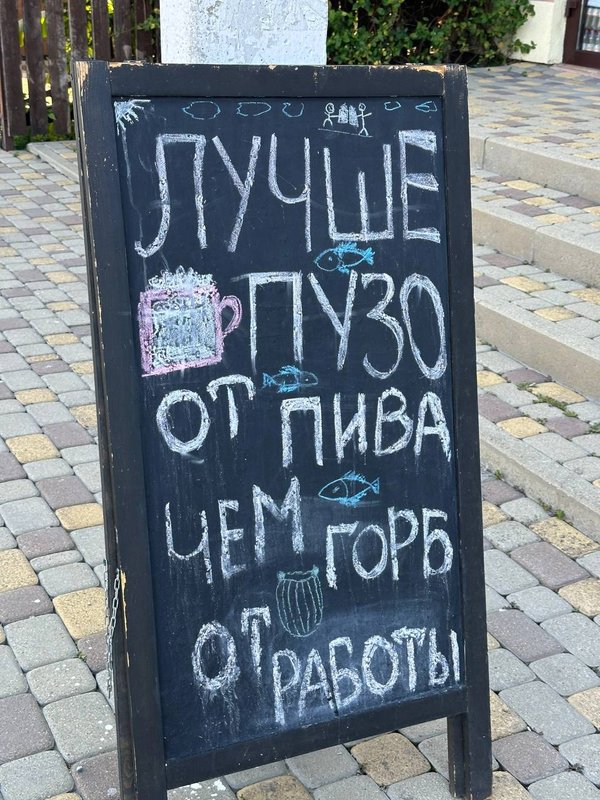 ЛУЧШЕ
ПУЗО
ОТ ПИВА
ЧЕМ ГОРБ
ОТ РАБОТЫ